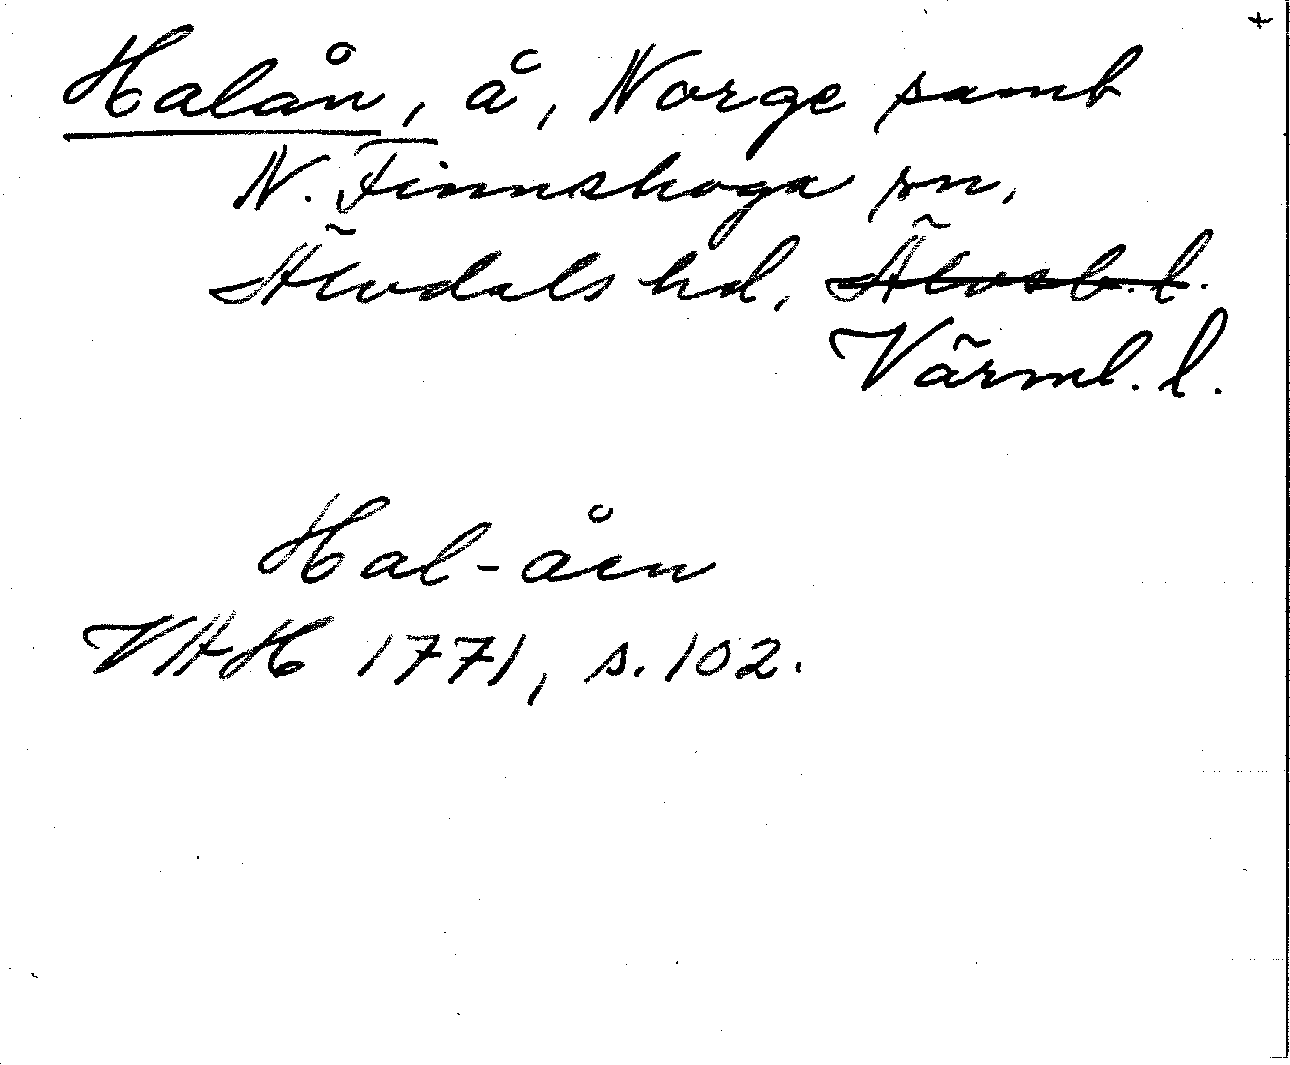 +
Halån, å, Norge samt
N. Finnskoga sn,
Älvdals hd, Älvsb. l.
Värml. l.
Hal-åen
VAH 1771, s. 102.